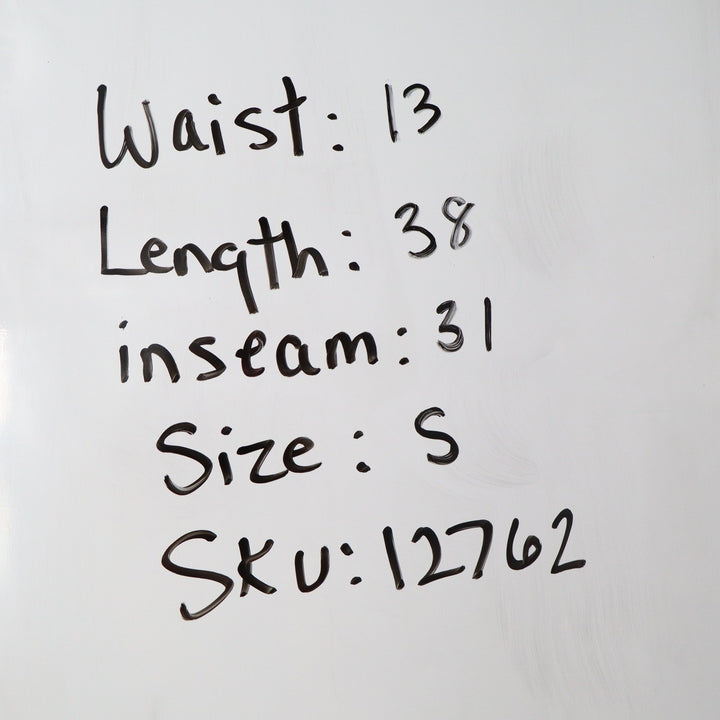 Waist: 13
Length: 38
inseam: 31
Size: S
SKU: 12762